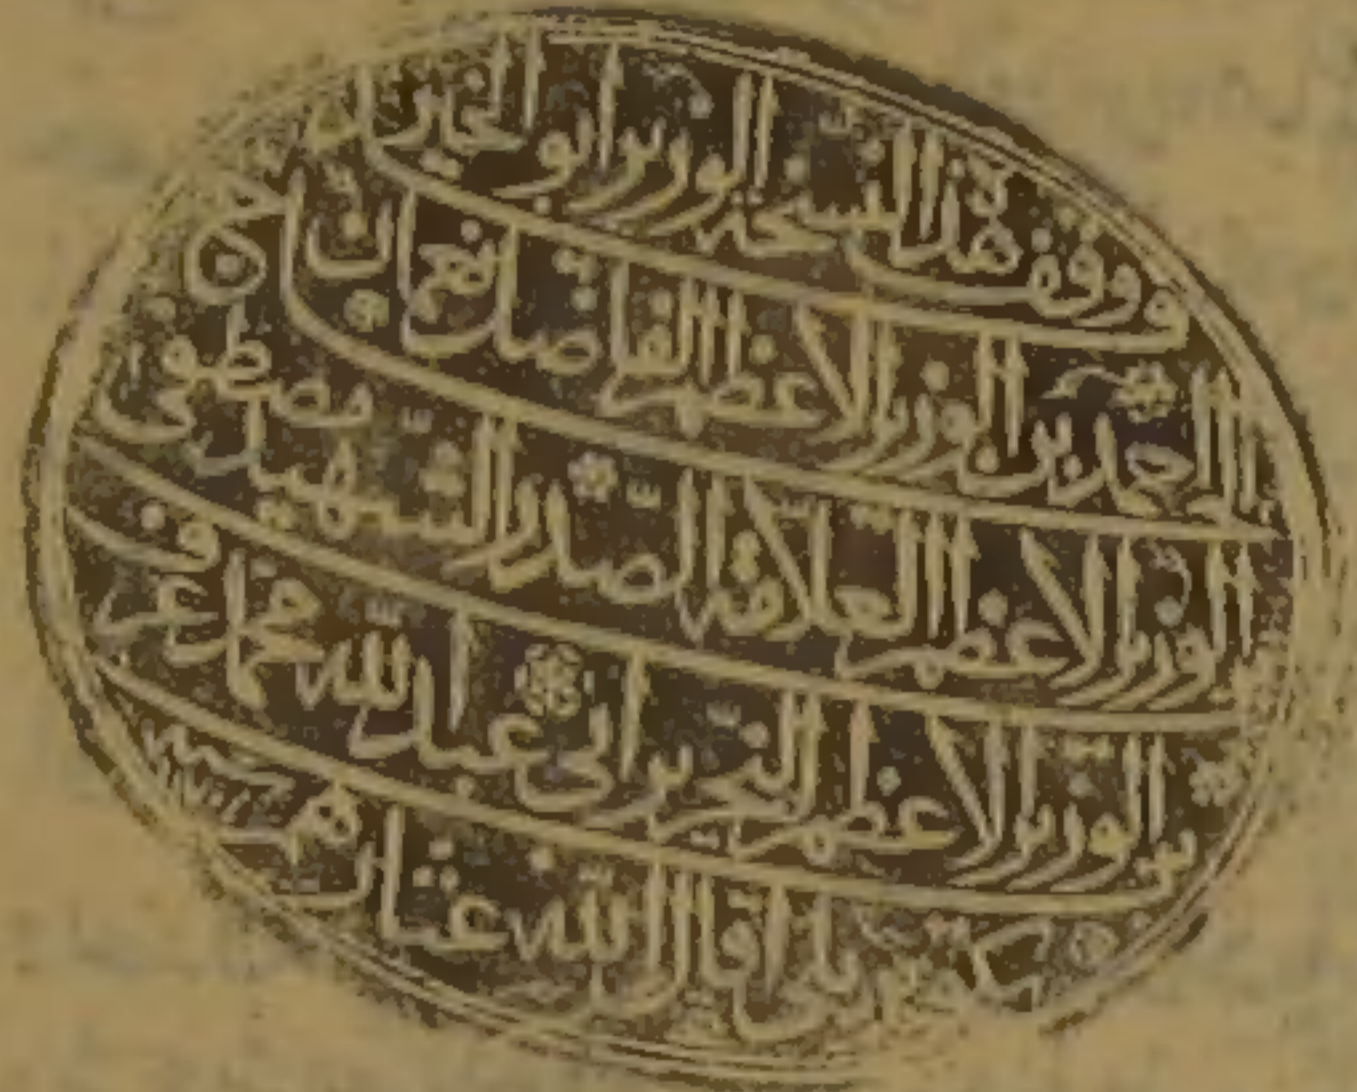 ووقف هذا النسخة الوزير ابو الخير
الحاج احمد بن الوزير الاعظم الفاضل نعمان بن
الوزير الاعظم العلامة الصدر الشهيد مصطفى
بن الوزير الاعظم النحرير ابي عبد الله محمد عرف
بكوبريلي اقال الله عثارهم